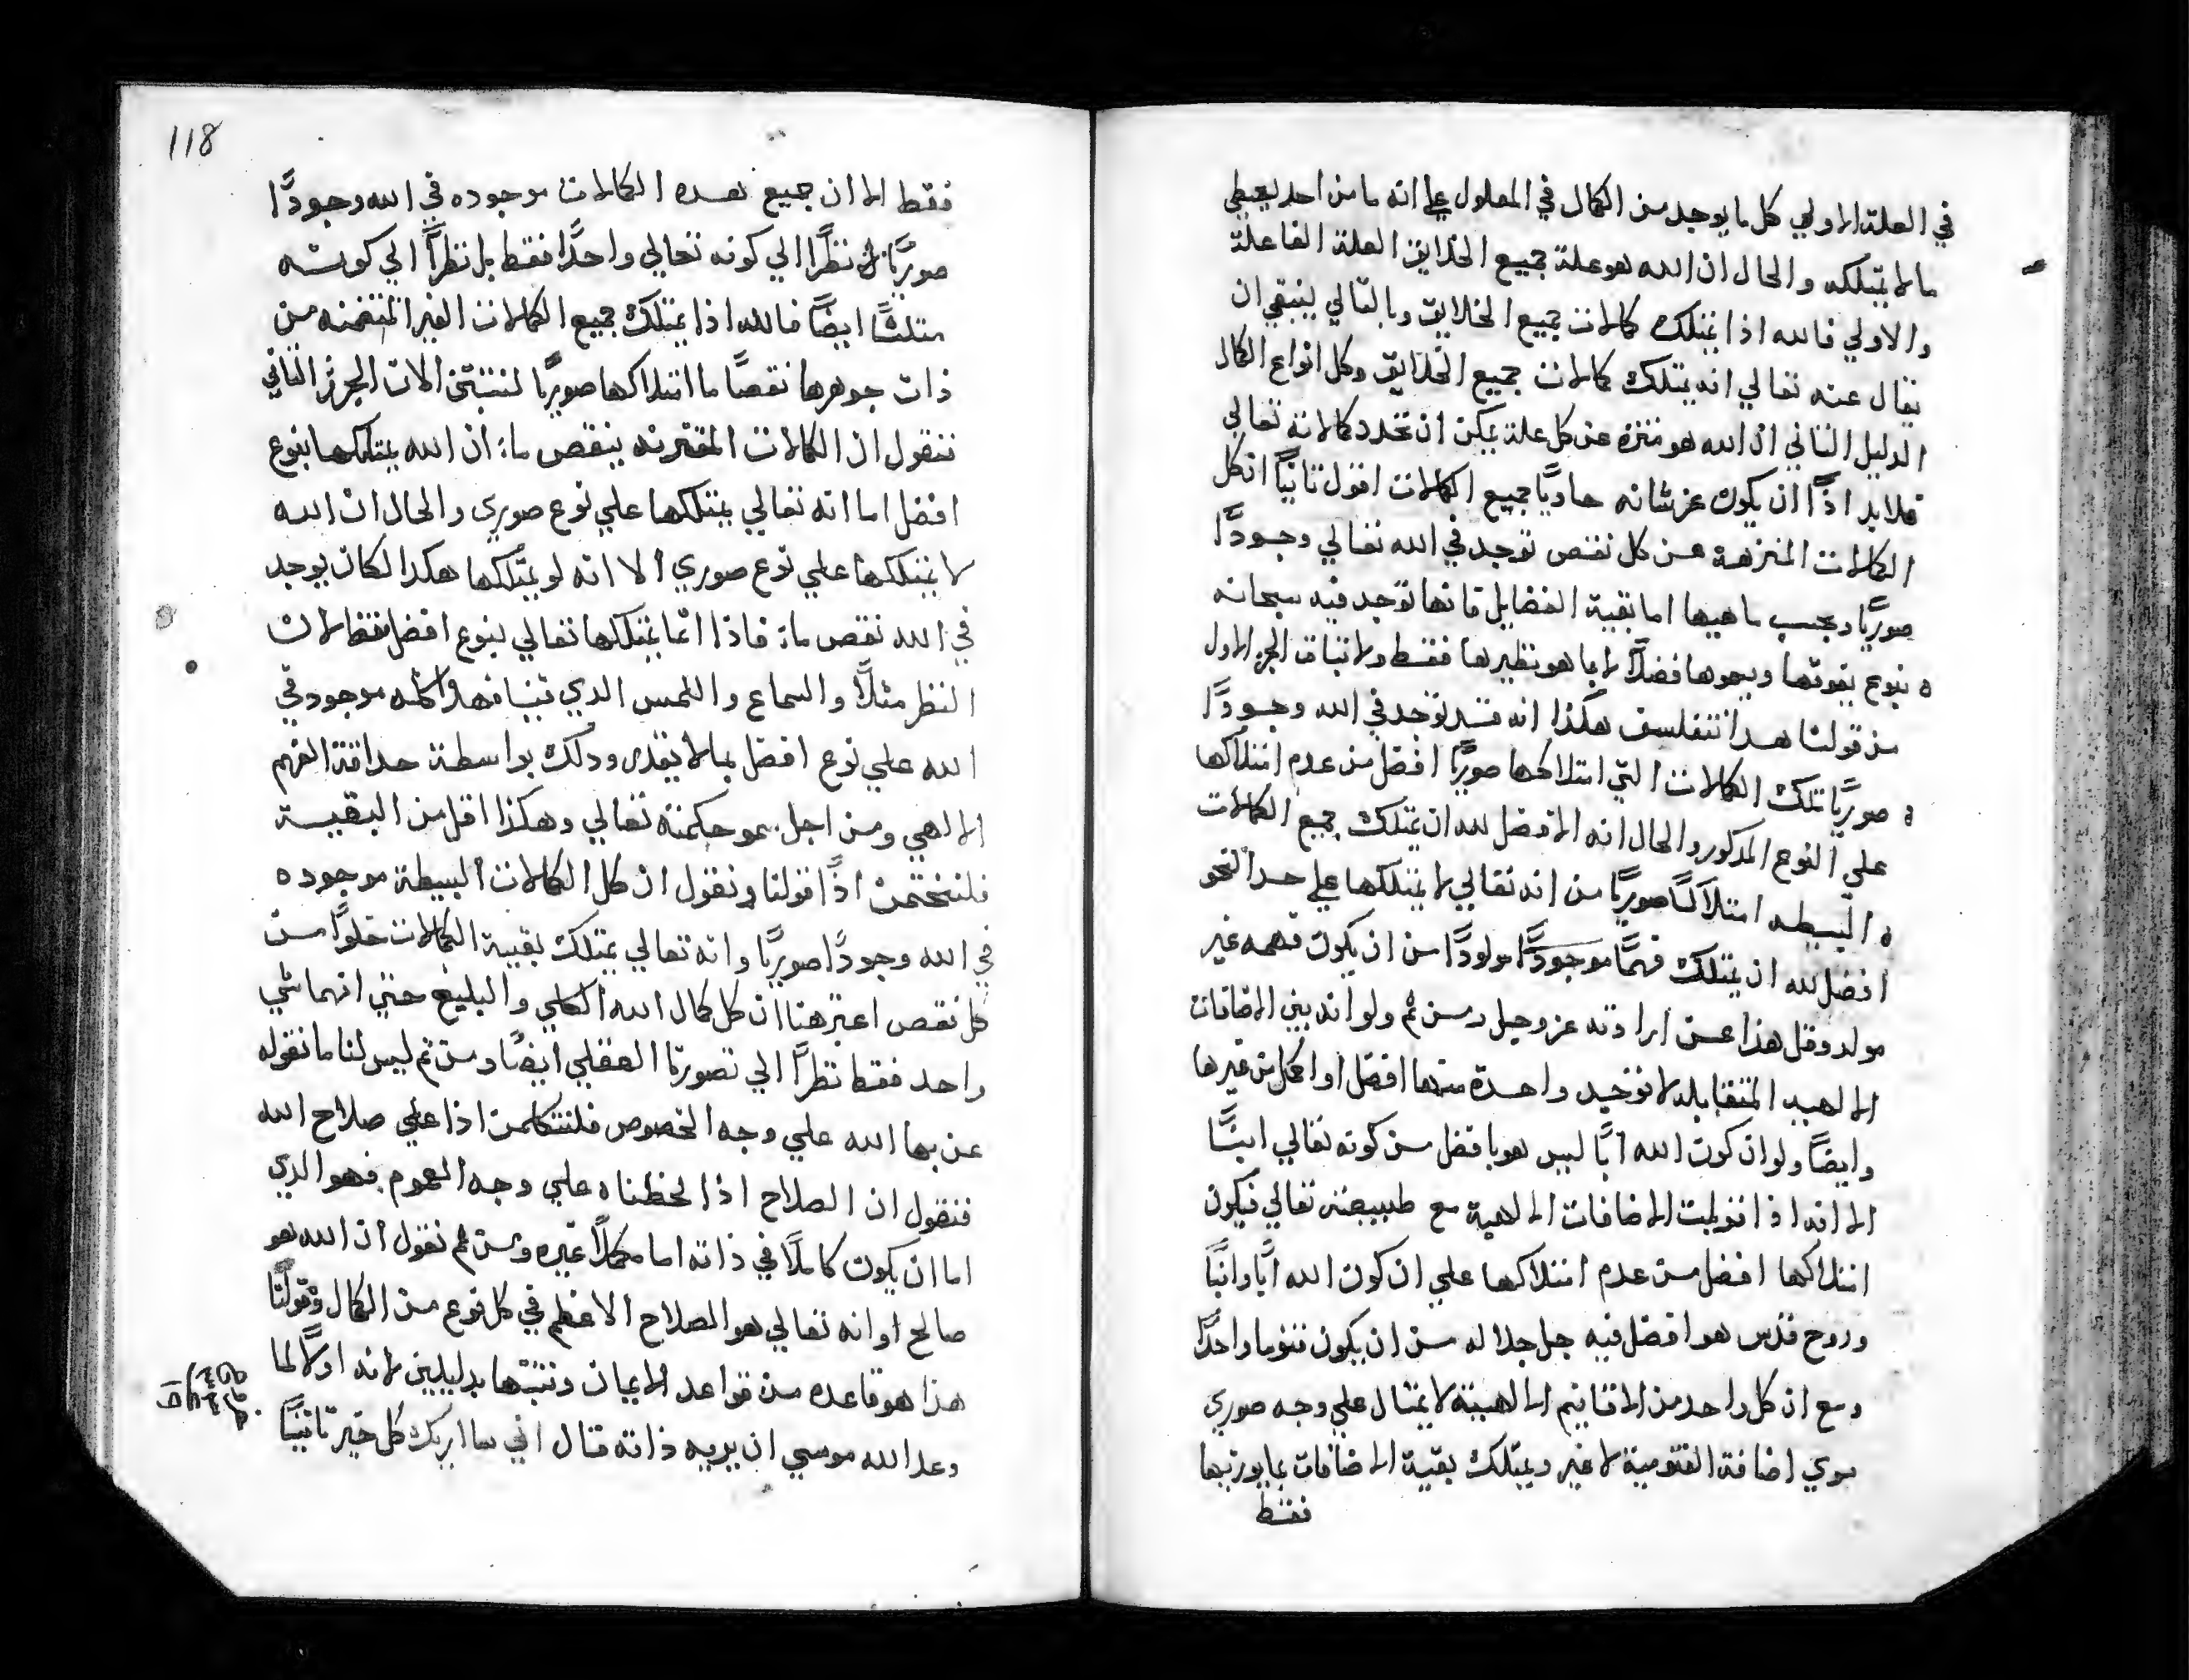 في العلة الاولي كل ما يوجد من الكمال في المعلول علي انه ما من احد يعطي
ما لا يمتلكه والحال ان الله هو علة جميع الخلايق العلة الفاعلة
والاولي فالله اذا يمتلك كمالات جميع الخلايق وبالتالي ينبغي ان
يقال عنه تعالي انه يمتلك كمالات جميع الخلايق وكل انواع الكمال
الدليل الثاني ان الله هو منزه عن كل علة يمكن ان تحدد كمالاته تعالي
فلا بد اذًا ان يكون عز شانه حاويًا جميع الكمالات اقول ثانيًا ان كل
الكمالات المنزهة عن كل نقص توجد في الله تعالي وجودًا
صوريًا وبحسب ماهيها اما بقية الفضايل فانها توجد فيه سبحانه
بنوع يفوقها ويسموها فضلًا لا بما هو نظيرها فقط ولاثبات الجز الاول
من قولنا هدا نتفلسف هكذا انه قد توجد في الله وجودًا
صوريًا تلك الكمالات التي امتلاكها صوريًا افضل من عدم امتلاكها
علي النوع المدكور والحال انه الافضل لله ان يمتلك جميع الكمالات
البسيطه امتلاكًا صوريًا من انه تعالي لا يمتلكها علي هدا النحو
افضل لله ان يمتلك فهمًا موجودًا مولودًا من ان يكون فهمه غير
مولد وقل هذا عن ارادته عز وجل ومن ثم ولو انه بين الاضافات
الالهيه المتقابله لا توجد واحدة منها افضل او اكمل من غيرها
وايضًا ولو ان كون الله ابًا ليس هو بافضل من كونه تعالي ابنًا
الا انه اذا قوبلت الاضافات الالهية مع طبيعته تعالي فيكون
امتلاكها افضل من عدم امتلاكها علي ان كون الله ابًا وابنًا
وروح قدس هو افضل فيه جل جلاله من ان يكون قنوما واحدًا
ومع ان كل واحد من الاقانيم الالهية لا يمتال علي وجه صوري
سوي اضافة القنومية لا غير ويمتلك بقية الاضافات بما يوزيها
فقط
118
فقط الا ان جميع هده الكمالات موجوده في الله وجودًا
صوريًا لا نظرًا الي كونه تعالي واحدًا فقط بل نظرًا الي كونه
مثلثًا ايضًا فالله اذا يمتلك جميع الكمالات الغير المتضمنه من
ذات جوهرها نقصًا ما امتلاكها صوريًا لنثبتن الان الجز الثاني
فنقول ان الكمالات المقترنه بنقص ما ان الله يمتلكها بنوع
افضل اما انه تعالي يمتلكها علي نوع صوري والحال ان الله
لا يمتلكها علي نوع صوري الا انه لو يمتلكها هكدا لكان يوجد
في الله نقص ما فاذا انما يمتلكها تعالي بنوع افضل فقط لان
النظر مثلًا والسماع واللمس الدي موجود في
الله علي نوع افضل بما لا يقدر ودلك بواسطة حداقة الفهم
الالهي ومن اجل سمو حكمته تعالي وهكذا اقل من البقية
فلنختمن اذًا قولنا ونقول ان كل الكمالات البسيطة موجوده
في الله وجودًا صوريًا وانه تعالي يمتلك بقية الكمالات خلوًا من
كل نقص اعتبر هنا ان كل كمال الله الكلي والبليغ حتي انهما شي
واحد فقط نظرًا الي تصورنا العقلي ايضًا ومن ثم ليس لنا ما نقوله
عن بها الله علي وجه الخصوص فلنتكلمن اذا علي صلاح الله
فنقول ان الصلاح اذا لحظناه علي وجه العموم فهو الدي
اما ان يكون كاملًا في ذاته اما مكملًا غيره ومن ثم نقول ان الله هو
صالح او انه تعالي هو الصلاح الاعظم في كل نوع من الكمال وقولنا
هذا هو قاعده من قواعد الايمان ونثبتها بدليلين لانه اولًا لما
وعد الله موسي ان يريه ذاته قال اني ساريك كل خير ثانيًا